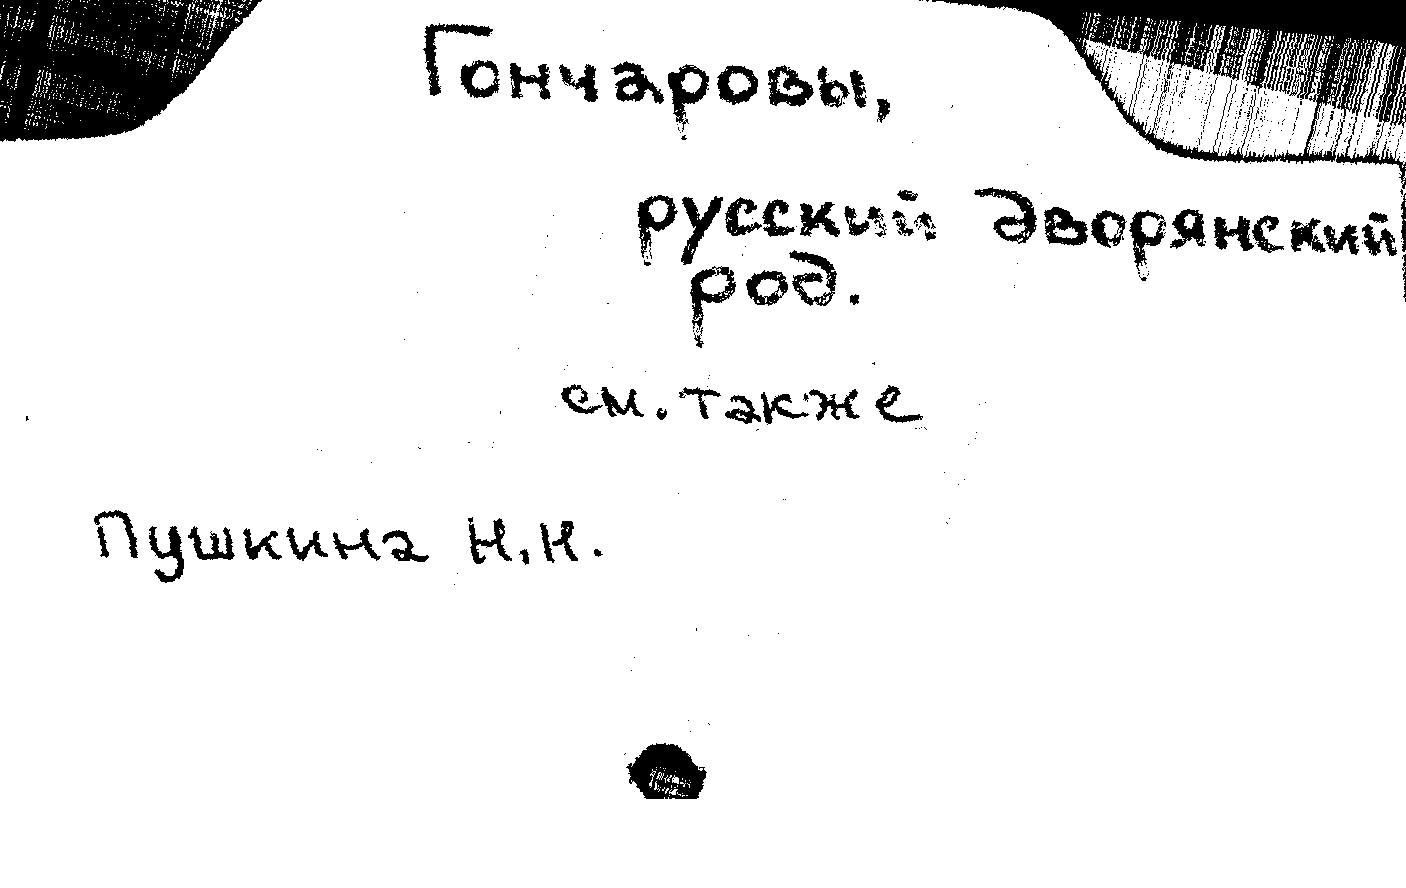 Гончаровы,
русский дворянский
род.
см. также
Пушкина Н.Н.